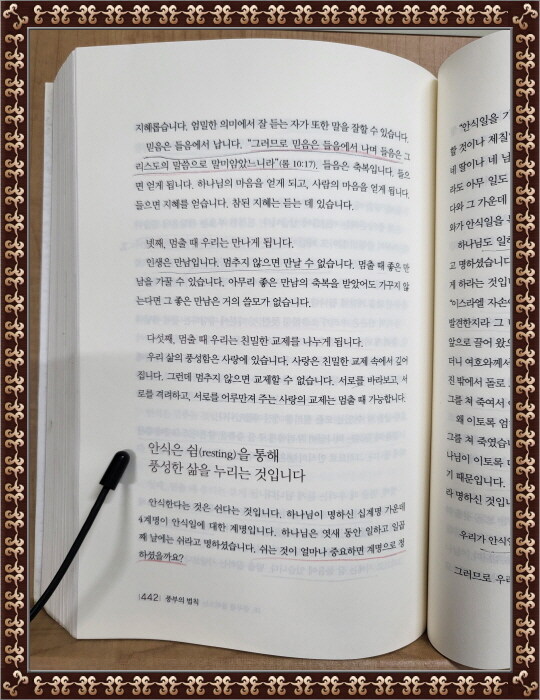 지혜롭습니다. 엄밀한 의미에서 잘 듣는 자가 또한 말을 잘할 수 있습니다.
믿음은 들음에서 납니다. "그러므로 믿음은 들음에서 나며 들음은 그
리스도의 말씀으로 말미암았느니라"(롬 10:17). 들음은 축복입니다. 들으
면 얻게 됩니다. 하나님의 마음을 얻게 되고, 사람의 마음을 얻게 됩니다.
들으면 지혜를 얻습니다. 참된 지혜는 듣는 데 있습니다.
넷째, 멈출 때 우리는 만나게 됩니다.
인생은 만남입니다. 멈추지 않으면 만날 수 없습니다. 멈출 때 좋은 만
남을 가꿀 수 있습니다. 아무리 좋은 만남의 축복을 받았어도 가꾸지 않
는다면 그 좋은 만남은 거의 쓸모가 없습니다.
다섯째, 멈출 때 우리는 친밀한 교제를 나누게 됩니다.
우리 삶의 풍성함은 사랑에 있습니다. 사랑은 친밀한 교제 속에서 깊어
집니다. 그런데 멈추지 않으면 교제할 수 없습니다. 서로를 바라보고, 서
로를 격려하고, 서로를 어루만져 주는 사랑의 교제는 멈출 때 가능합니다.
안식은 쉼(resting)을 통해
풍성한 삶을 누리는 것입니다
안식한다는 것은 쉰다는 것입니다. 하나님이 명하신 십계명 가운데
4계명이 안식일에 대한 계명입니다. 하나님은 엿새 동안 일하고 일곱
째 날에는 쉬라고 명하셨습니다. 쉬는 것이 얼마나 중요하면 계명으로 정
하셨을까요?
442 풍부의 법칙
"안식일을 기
할 것이나 제칠
네 딸이나 네 남
라도 아무 일도
다와 그 가운데
와가 안식일을
하나님도 일하
고 명하셨습니다
게 하라는 것입니
"이스라엘 자손이
발견한지라 그
앞으로 끌어 왔으
더니 여호와께서
진 밖에서 돌로
그를 쳐 죽여서
왜 이토록 엄
그를 쳐 죽였습니
나님이 이토록
기 때문입니다.
라 명하신 것입니
우리가 안식일
그러므로 우리